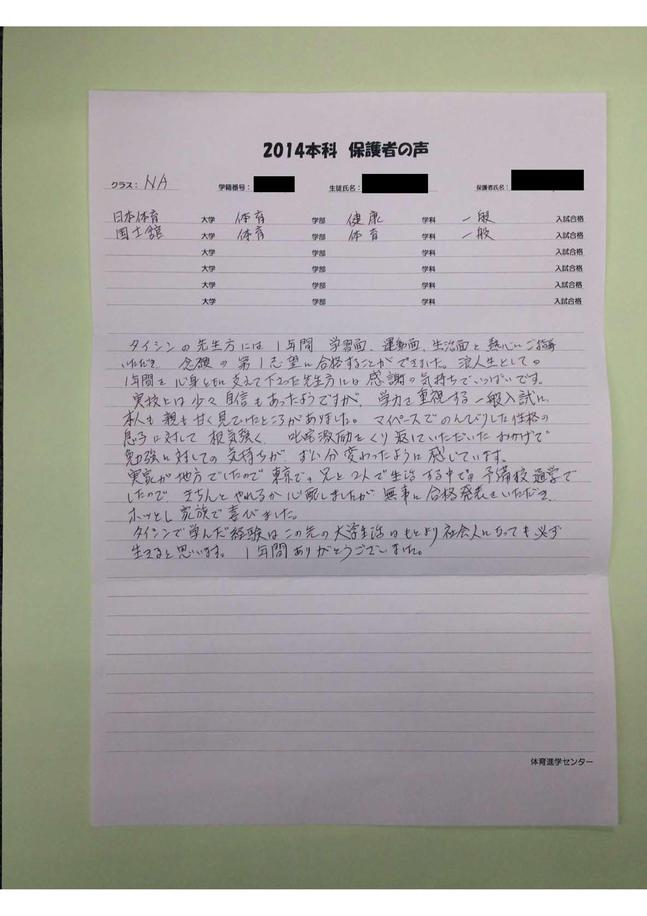 2014本科 保護者の声
クラス： NA 学籍番号： 生徒氏名： 保護者氏名：
日本体育 大学 体育 学部 健康 学科 一般 入試合格
国士舘 大学 体育 学部 体育 学科 一般 入試合格
大学 学部 学科 入試合格
大学 学部 学科 入試合格
大学 学部 学科 入試合格
大学 学部 学科 入試合格
タイシンの先生方には 1年間 学習面、運動面、生活面と 熱心にご指導
いただき 念願の第1志望に合格することができました。浪人生としての
1年間を 心身ともに支えて下さった先生方には 感謝の気持ちでいっぱいです。
実技には少々自信もあったようですが、学力を重視する一般入試に
本人も親も甘く見ていたところがありました。マイペースでのんびりした性格の
息子に対して 根気強く 叱咤激励をくり返していただいたおかげで
勉強に対しての気持ちが ずい分変わったように感じています。
実家が地方でしたので東京で兄と2人で生活する中での予備校通学で
したので きちんとやれるか心配しましたが 無事に合格発表をいただき
ホッとし家族で喜びました。
タイシンで学んだ経験はこの先の大学生活はもとより社会人になっても必ず
生きると思います。 1年間ありがとうございました。
体育進学センター